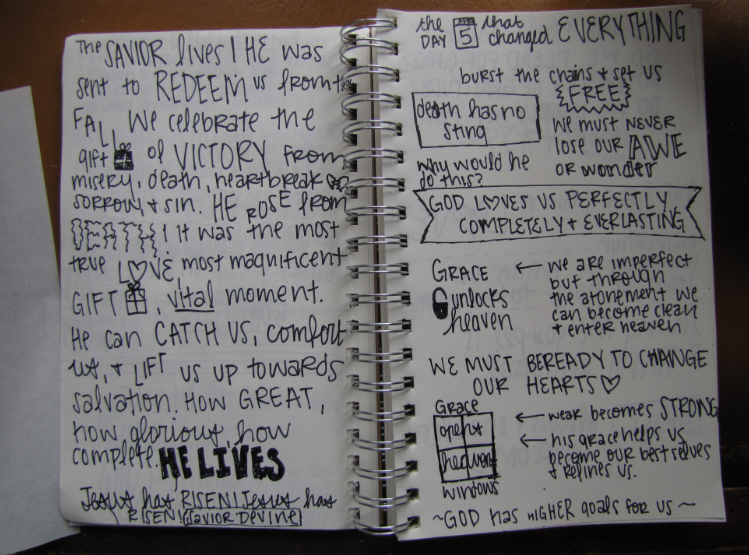 The SAVIOR lives! HE was
sent to REDEEM us from the
FALL We celebrate the
gift of VICTORY from
misery, death, heartbreak
sorrow, + sin. HE ROSE from
DEATH! It was the most
true LOVE, most magnificent
GIFT, vital moment.
He can CATCH US, comfort
us, + LIFT us up towards
salvation. How GREAT,
how glorious, how
complete. HE LIVES
Jesus has RISEN! Jesus has
RISEN! Savior Devine
the DAY 5 that changed EVERYTHING
burst the chains + set us
FREE!
death has no
sting
We must NEVER
lose our AWE
or wonder
why would he
do this?
GOD LOVES US PERFECTLY
COMPLETELY + EVERLASTING
GRACE
unlocks
heaven
← we are imperfect
but through
the atonement we
can become clean
+ enter heaven
WE MUST BE READY TO CHANGE
OUR HEARTS ♡
Grace
opens
heavens
windows
← weak becomes STRONG
← his grace helps us
become our best selves
+ refines us.
~GOD has HIGHER goals for us~